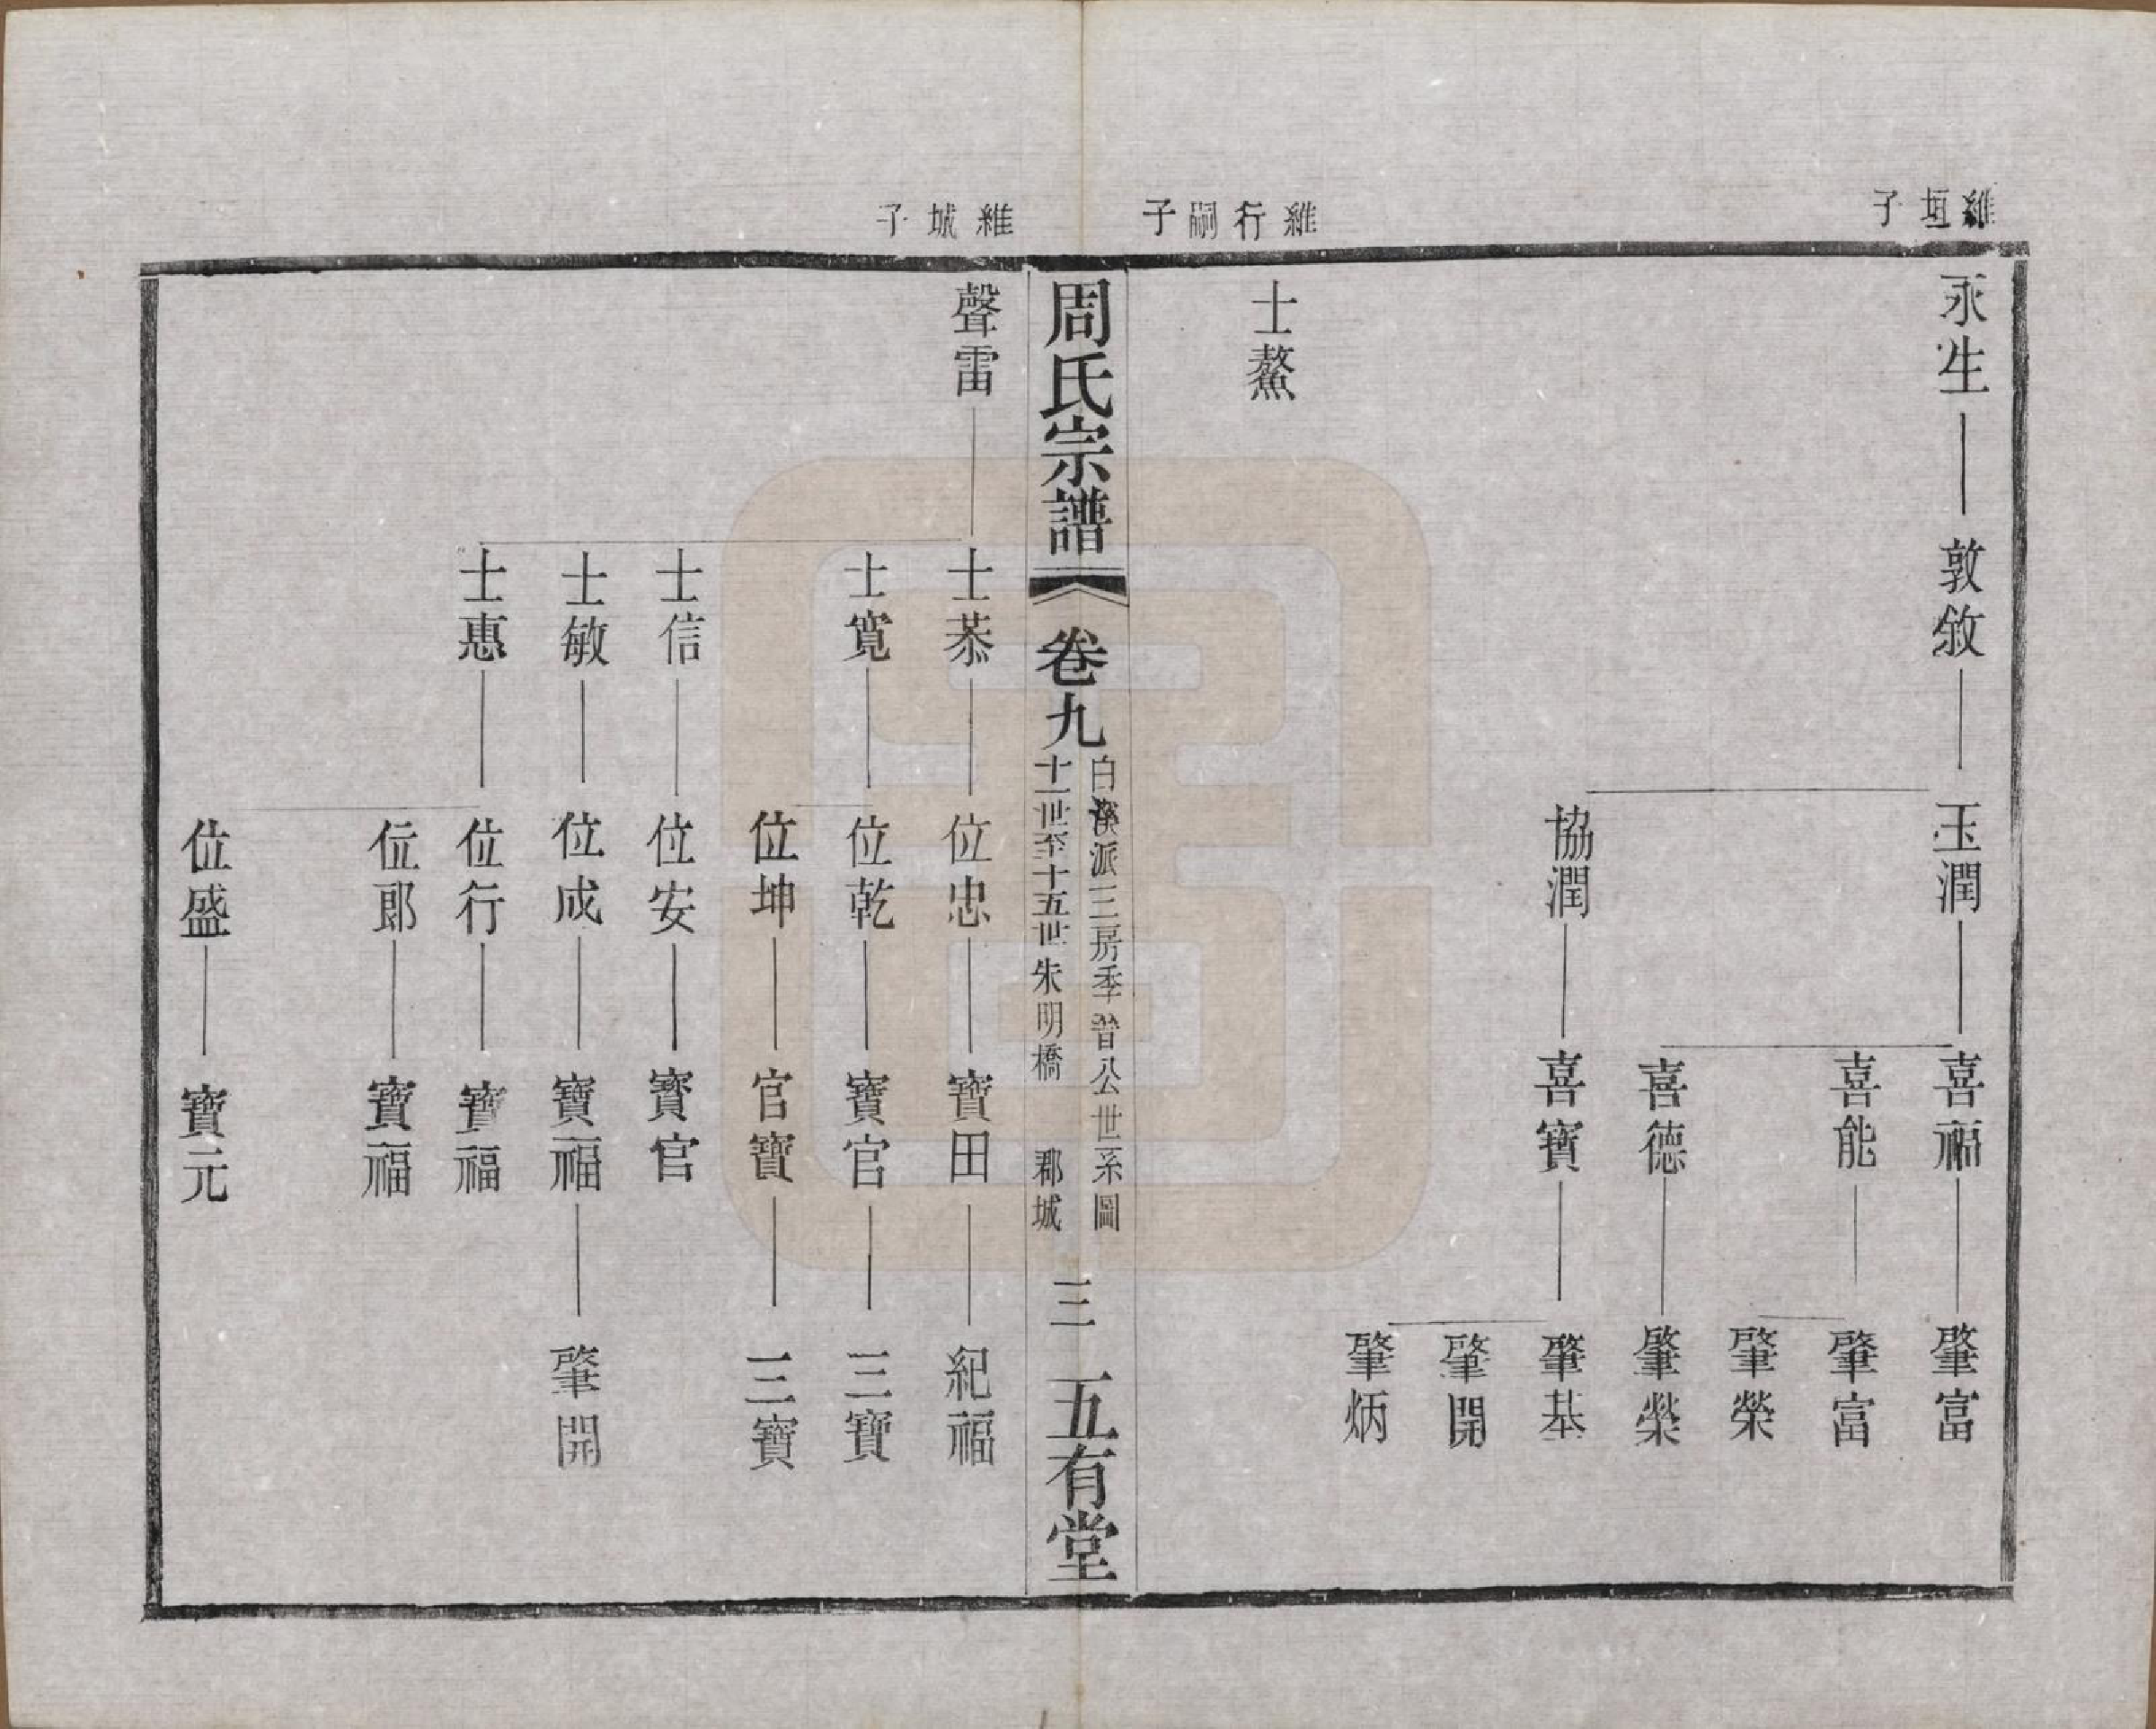 維垣子
永生
敦敘
玉潤
喜福
肇富
喜能
肇富
肇榮
喜德
肇榮
協潤
喜寶
肇基
肇開
肇炳
維行嗣子
士鰲
周氏宗譜
卷九
白溪派三房季晋公世系圖
十一世至十五世 朱明橋 郡城
三
五有堂
維城子
聲雷
士恭
位忠
寶田
紀福
士寬
位乾
寶官
三寶
位坤
官寶
三寶
士信
位安
賓官
士敏
位成
寶福
肇開
士惠
位行
寶福
位郎
寶福
位盛
寶元